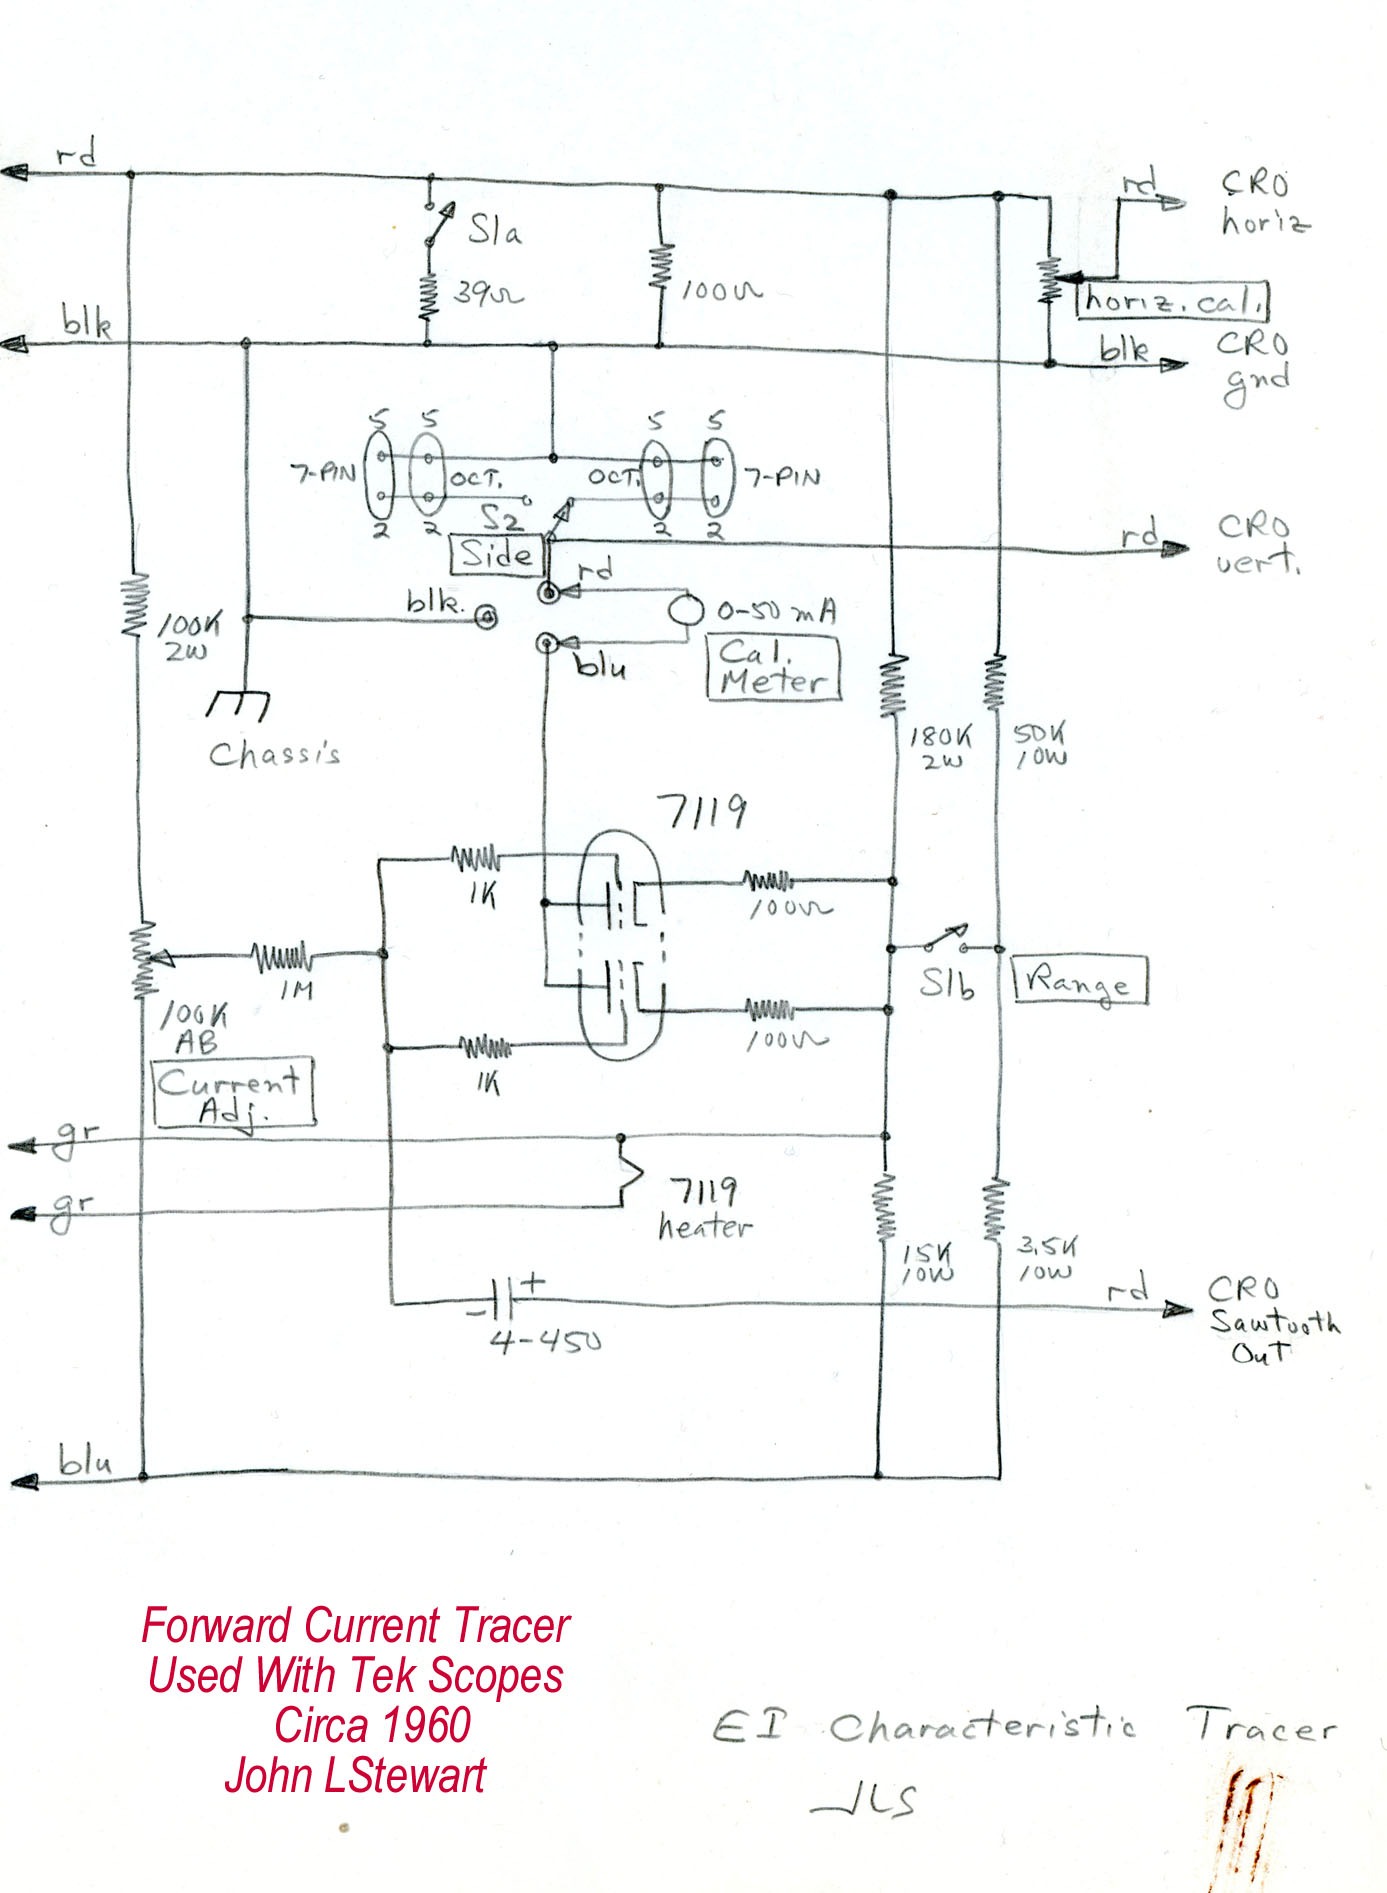 rd
rd
CRO
horiz
S1a
39Ω
100Ω
horiz. cal.
blk
blk
CRO
gnd
5
5
5
5
7-PIN
OCT.
OCT.
7-PIN
2
2
S2
2
2
Side
rd
CRO
vert.
rd
blk.
0-50 mA
blu
Cal.
Meter
100K
2W
Chassis
180K
2W
50K
10W
7119
1K
100Ω
1M
S1b
Range
100K
AB
100Ω
1K
Current
Adj.
gr
gr
7119
heater
15K
10W
3.5K
10W
+
-
4-450
rd
CRO
Sawtooth
Out
blu
Forward Current Tracer
Used With Tek Scopes
Circa 1960
John LStewart
EI Characteristic Tracer
JLS